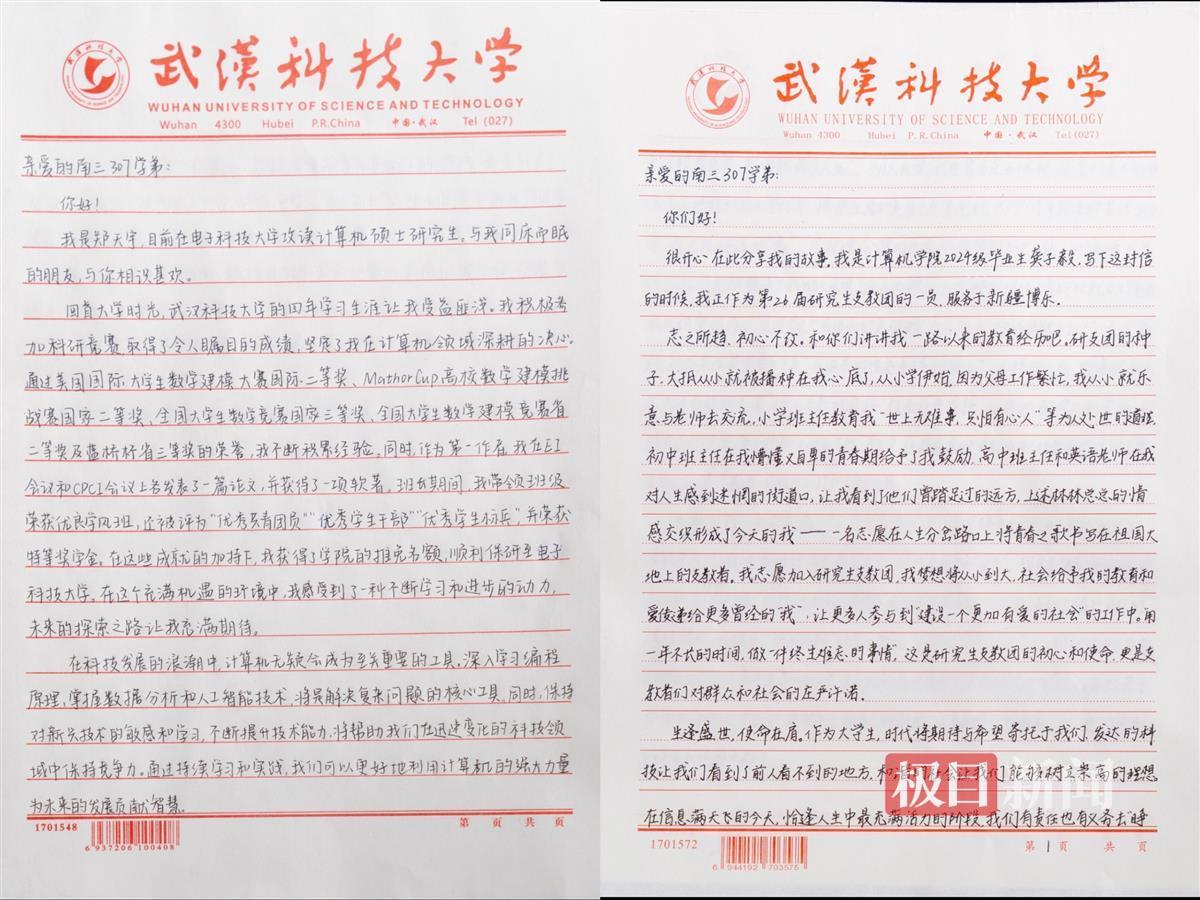 武汉科技大学
武漢科技大学
WUHAN UNIVERSITY OF SCIENCE AND TECHNOLOGY
Wuhan 4300 Hubei P.R.China 中国·武汉 Tel (027)
亲爱的南三307学弟：
你好！
我是郑天宇，目前在电子科技大学攻读计算机硕士研究生。与我同床而眠
的朋友，与你相识甚欢。
回首大学时光，武汉科技大学的四年学习生涯让我受益匪浅。我积极参
加科研竞赛取得了令人瞩目的成绩，坚定了我在计算机领域深耕的决心。
通过美国国际大学生数学建模大赛国际二等奖、MathorCup高校数学建模挑
战赛国家二等奖、全国大学生数学竞赛国家三等奖、全国大学生数学建模竞赛省
二等奖及蓝桥杯省三等奖的荣誉，我不断积累经验。同时，作为第一作者，我在EI
会议和CPCI会议上各发表了一篇论文，并获得了一项软著。班长期间，我带领班级
荣获优良学风班，还被评为“优秀共青团员”“优秀学生干部”“优秀学生标兵”，并荣获
特等奖学金。在这些成就的加持下，我获得了学院的推免名额，顺利保研至电子
科技大学。在这个充满机遇的环境中，我感受到了一种不断学习和进步的动力，
未来的探索之路让我充满期待。
在科技发展的浪潮中，计算机无疑会成为至关重要的工具。深入学习编程
原理，掌握数据分析和人工智能技术，将是解决复杂问题的核心工具。同时，保持
对新兴技术的敏感和学习，不断提升技术能力，将帮助我们在迅速变化的科技领
域中保持竞争力。通过持续学习和实践，我们可以更好地利用计算机的强大力量
为未来的发展贡献智慧。
1701548
第 页 共 页
6 937206 100408
武汉科技大学
武漢科技大学
WUHAN UNIVERSITY OF SCIENCE AND TECHNOLOGY
Wuhan 4300 Hubei P.R.China 中国·武汉 Tel(027)
亲爱的南三307学弟：
你们好！
很开心在此分享我的故事。我是计算机学院2024级毕业生龚子毅，写下这封信
的时候，我正作为第26届研究生支教团的一员，服务于新疆博乐。
志之所趋，初心不改。和你们讲讲我一路以来的教育经历吧。研支团的种
子，大抵从小就被播种在我心底了，从小学伊始，因为父母工作繁忙，我从小就乐
意与老师去交流，小学班主任教育我“世上无难事，只怕有心人”等为人处世的道理，
初中班主任在我懵懂又自卑的青春期给予了我鼓励，高中班主任和英语老师在我
对人生感到迷惘的街道口，让我看到了他们曾踏足过的远方，上述林林总总的情
感交织形成了今天的我——一名志愿在人生分岔路口上将青春之歌书写在祖国大
地上的支教者。我志愿加入研究生支教团，我梦想将从小到大，社会给予我的教育和
爱传递给更多曾经的“我”，让更多人参与到“建设一个更加有爱的社会”的工作中。用
一年不长的时间，做一件终生难忘的事情，这是研究生支教团的初心和使命，更是支
教者们对群众和社会的庄严许诺。
生逢盛世，使命在肩。作为大学生，时代将期待与希望寄托于我们，发达的科
技让我们看到了前人看不到的地方，和谐的社会让我们能够树立崇高的理想
在信息满天飞的今天，恰逢人生中最充满活力的阶段，我们有责任也有义务去“睁
极目新闻
1701572
第1页 共 页
6 944192 703575